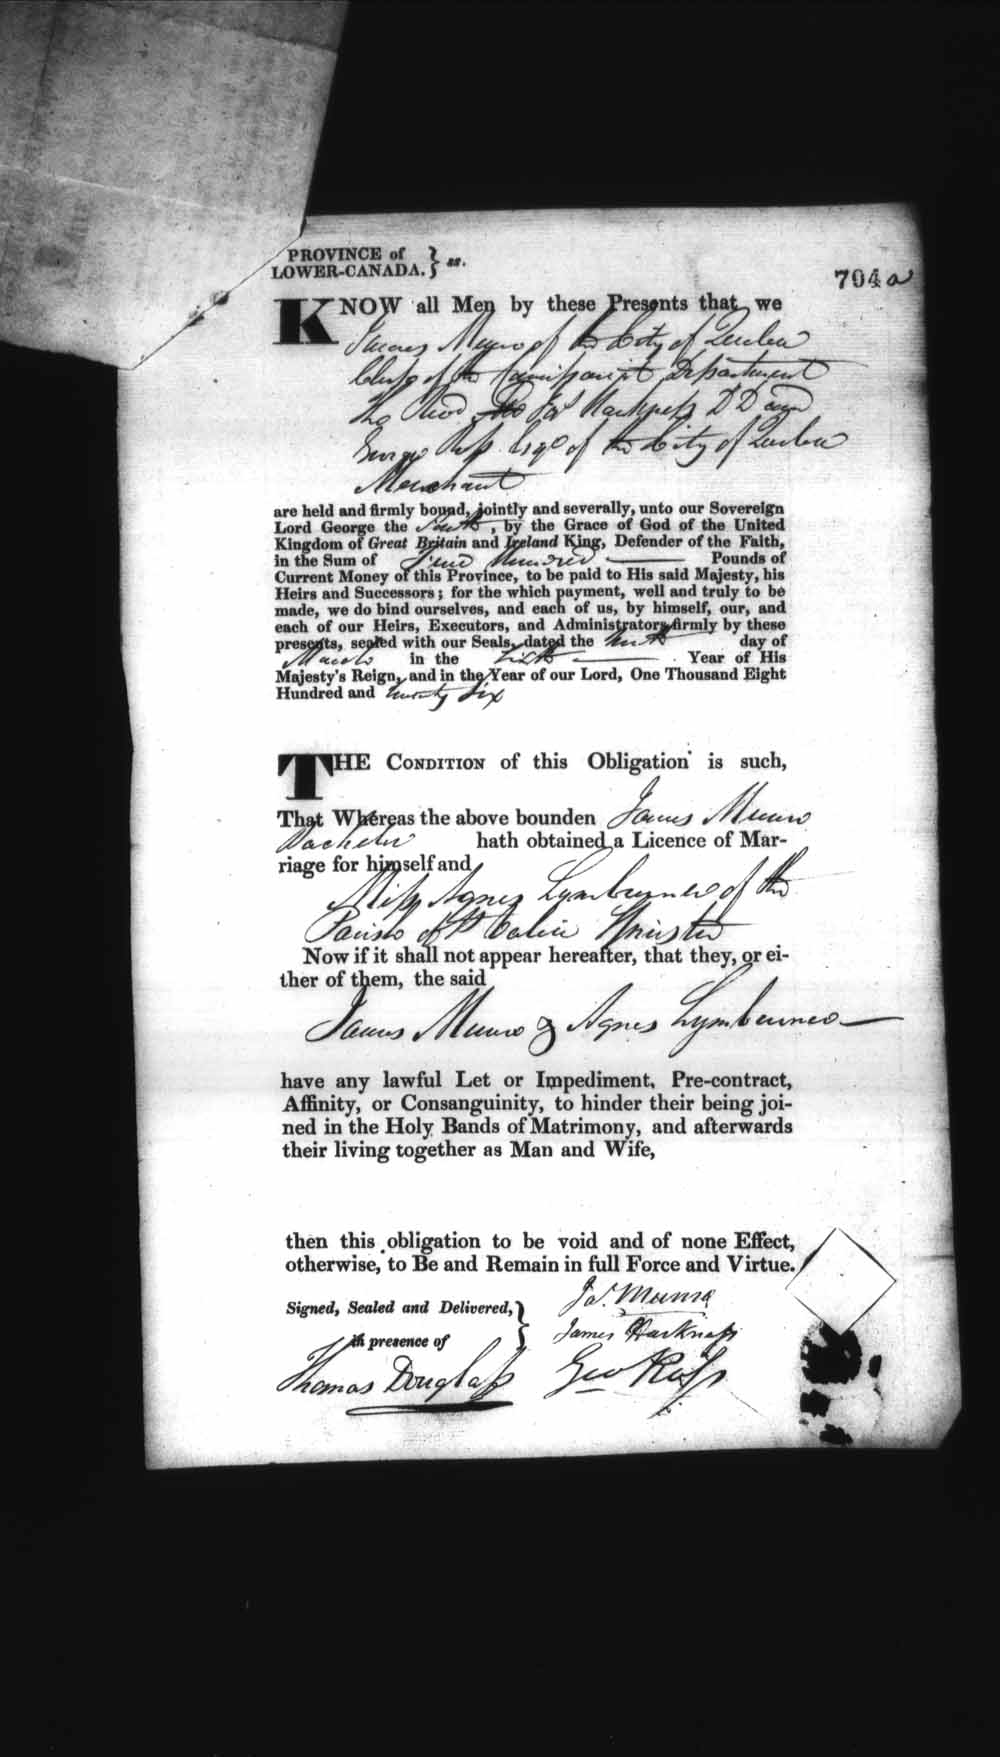 PROVINCE of
LOWER-CANADA. } ss.
704a
KNOW all Men by these Presents that we
James Munro of the City of Quebec
Clerk of the Commissariat Department
The Revd Jas Harkness D D and
George Ross Esqr of the City of Quebec
Merchant
are held and firmly bound, jointly and severally, unto our Sovereign
Lord George the Fourth, by the Grace of God of the United
Kingdom of Great Britain and Ireland King, Defender of the Faith,
in the Sum of Hundred Pounds of
Current Money of this Province, to be paid to His said Majesty, his
Heirs and Successors; for the which payment, well and truly to be
made, we do bind ourselves, and each of us, by himself, our, and
each of our Heirs, Executors, and Administrators firmly by these
presents, sealed with our Seals, dated the day of
March in the Year of His
Majesty's Reign, and in the Year of our Lord, One Thousand Eight
Hundred and twenty six
THE CONDITION of this Obligation is such,
That Whereas the above bounden James Munro
Bachelor hath obtained a Licence of Mar-
riage for himself and
Miss Agnes Lymburner of the
Parish of St Spinster
Now if it shall not appear hereafter, that they, or ei-
ther of them, the said
James Munro & Agnes Lymburner
have any lawful Let or Impediment, Pre-contract,
Affinity, or Consanguinity, to hinder their being joi-
ned in the Holy Bands of Matrimony, and afterwards
their living together as Man and Wife,
then this obligation to be void and of none Effect,
otherwise, to Be and Remain in full Force and Virtue.
Signed, Sealed and Delivered, }
in presence of
Jas. Munro
James Harkness
Thomas Douglass
Geo Ross